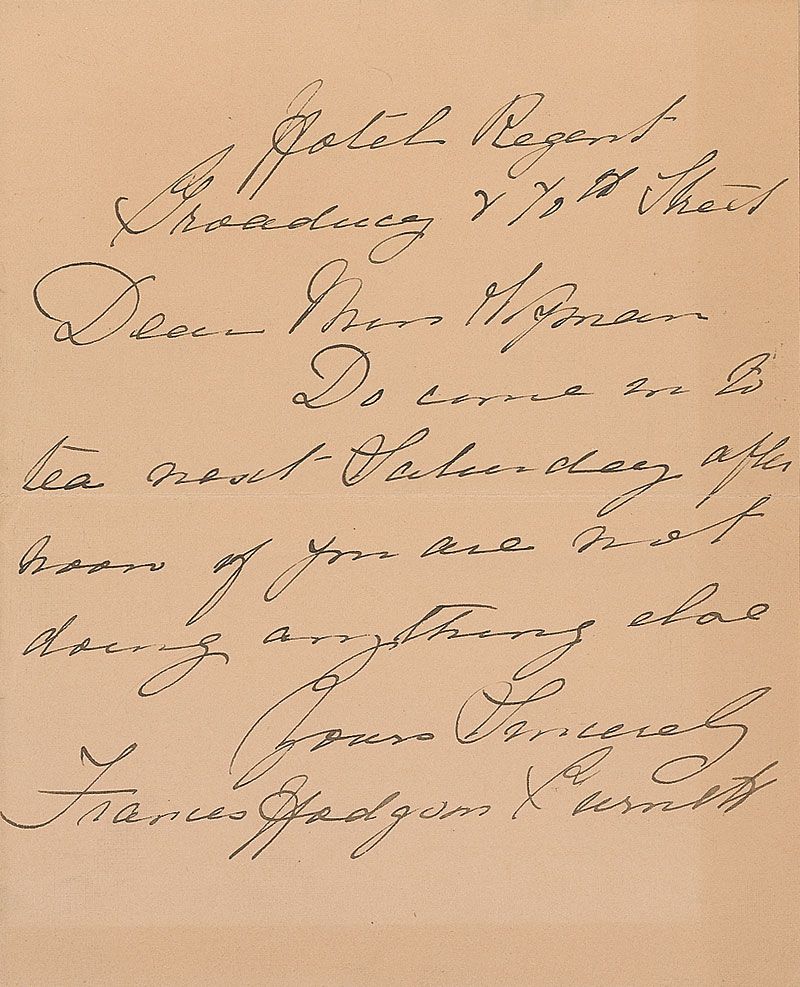 Hotel Regent
Broadway & 70th Street
Dear Miss Wyman
Do come in to
tea next Saturday after
noon if you are not
doing anything else
Yours Sincerely
Frances Hodgson Burnett